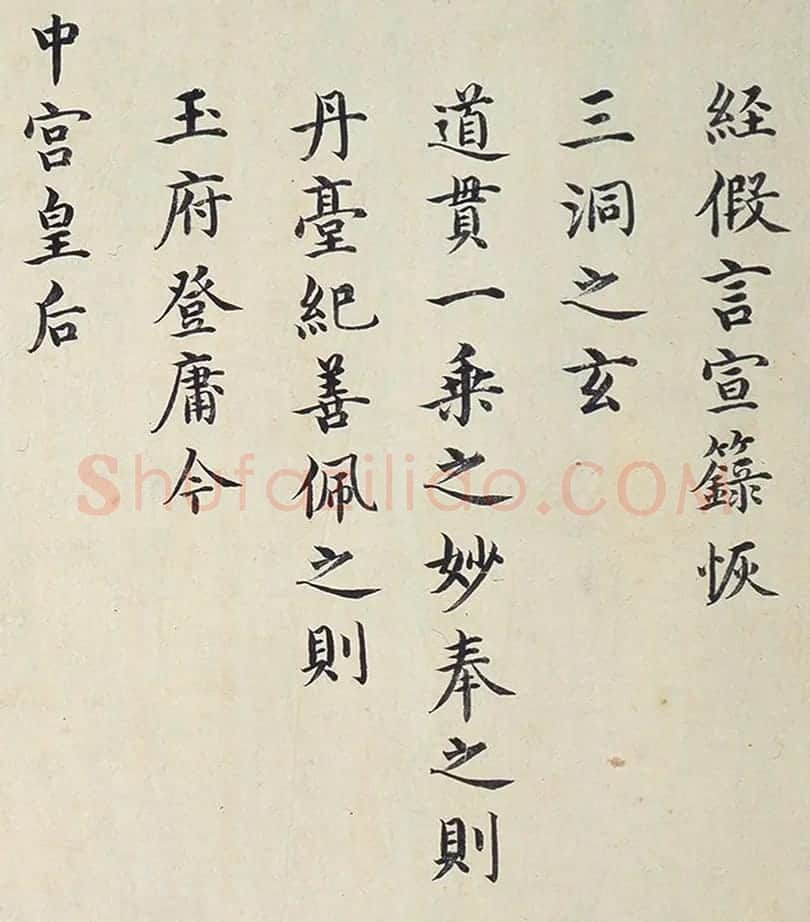 経假言宣籙恢
三洞之玄
道貫一乗之妙奉之則
丹臺紀善佩之則
玉府登庸今
中宫皇后
Shufaziliao.COM